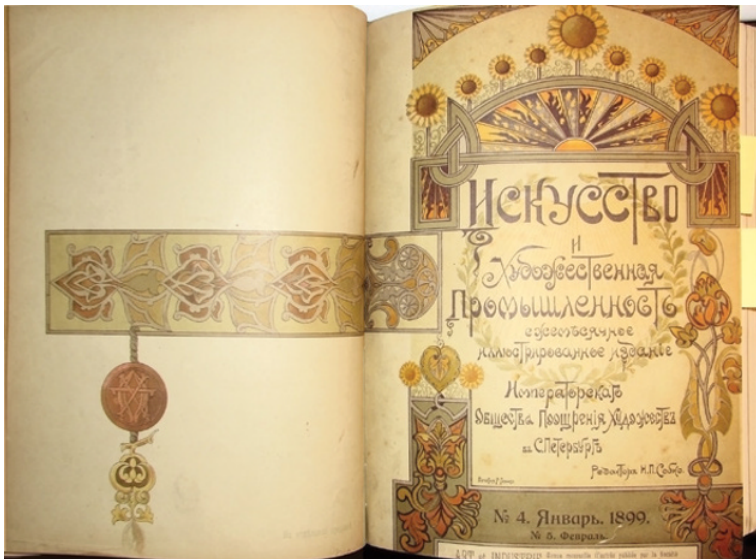 Искусство
и
Художественная
Промышленность
ежемѣсячное
иллюстрированное изданіе
Императорскаго
Общества Поощренія Художествъ
въ С.Петербургѣ
Редакторъ Н.П.Собко.
№ 4. Январь. 1899.
№ 5. Февраль.
ART et INDUSTRIE